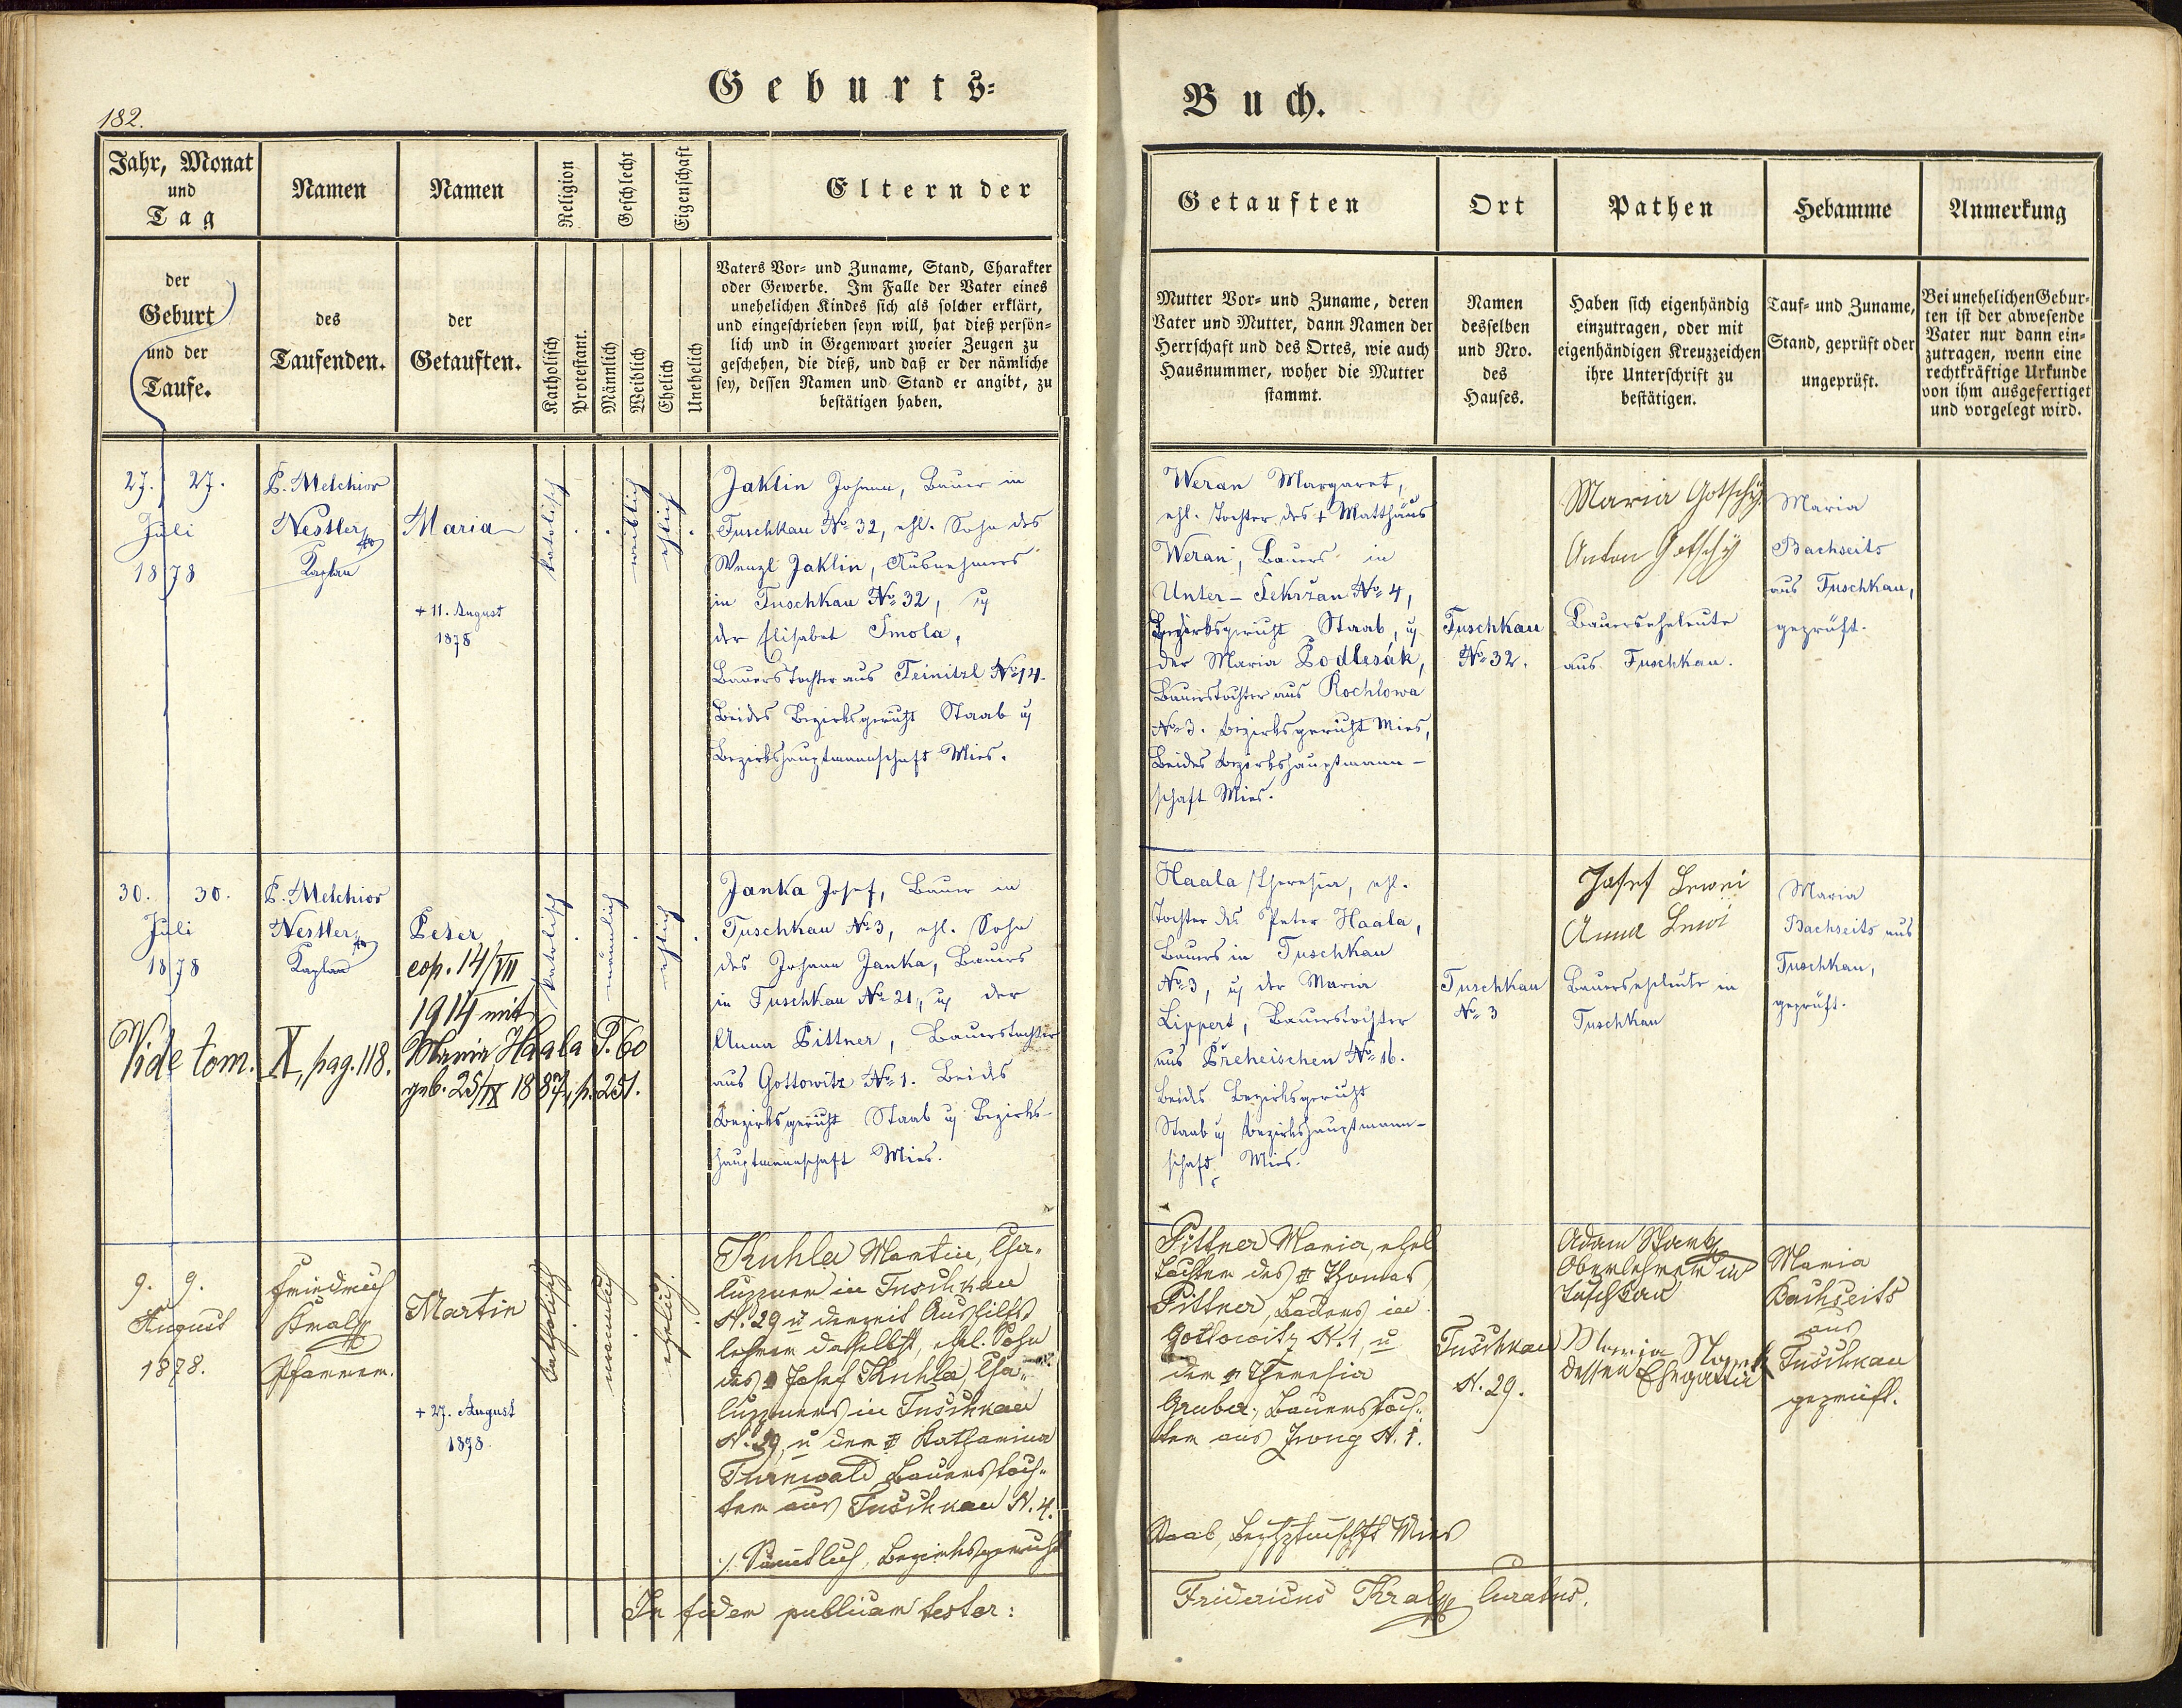 182.
Geburts-
Buch.
Jahr, Monat
und
Tag
der
Geburt
und der
Taufe.
Namen
des
Taufenden.
Namen
der
Getauften.
Religion
Katholisch
Protestant.
Geschlecht
Männlich
Weiblich
Eigenschaft
Ehelich
Unehelich
Eltern der
Vaters Vor- und Zuname, Stand, Charakter
oder Gewerbe. Im Falle der Vater eines
unehelichen Kindes sich als solcher erklärt,
und eingeschrieben seyn will, hat dieß persön-
lich und in Gegenwart zweier Zeugen zu
geschehen, die dieß, und daß er der nämliche
sey, dessen Namen und Stand er angibt, zu
bestätigen haben.
Getauften
Mutter Vor- und Zuname, deren
Vater und Mutter, dann Namen der
Herrschaft und des Ortes, wie auch
Hausnummer, woher die Mutter
stammt.
Ort
Namen
desselben
und Nro.
des
Hauses.
Pathen
Haben sich eigenhändig
einzutragen, oder mit
eigenhändigen Kreuzzeichen
ihre Unterschrift zu
bestätigen.
Hebamme
Tauf- und Zuname,
Stand, geprüft oder
ungeprüft.
Anmerkung
Bei unehelichen Gebur-
ten ist der abwesende
Vater nur dann ein-
zutragen, wenn eine
rechtkräftige Urkunde
von ihm ausgefertiget
und vorgelegt wird.
27. 27.
Juli
1878
P. Melchior
Nestler
Kaplan
Maria
+ 11. August
1878
katolisch
weiblich
ehlich
Jaklin Johann, Bauer in
Tuschkau No 32, ehl. Sohn des
Wenzl Jaklin, Ausnehmers
in Tuschkau No 32, u
der Elisabet Smola,
Bauers Tochter aus Teinitzl No 14.
Beides Bezirksgericht Staab u
Bezirkshauptmannschaft Mies.
Weran Margaret,
ehl. Tochter des + Matthäus
Weran, Bauers in
Unter-Sekržan No 4,
Bezirksgericht Staab, u
der Maria Podlesák,
Bauerstochter aus Rochlowa
No 3. Bezirksgericht Mies,
Beides Bezirkshauptmann-
schaft Mies.
Tuschkau
No 32.
Maria Gotschy
Anton Gotschy
Bauerseheleute
aus Tuschkau.
Maria
Bachseits
aus Tuschkau,
geprüft.
30. 30.
Juli
1878
P. Melchior
Nestler
Kaplan
Peter
cop. 14/VII
1914 mit
Maria Haala T. 60
geb. 25/IX 1887, p. 251.
Vide tom. X, pag. 118.
katolisch
männlich
ehlich
Janka Josef, Bauer in
Tuschkau No 3, ehl. Sohn
des Johann Janka, Bauers
in Tuschkau No 21, u der
Anna Pittner, Bauerstochter
aus Gottowitz No 1. Beides
Bezirksgericht Staab u Bezirks-
hauptmannschaft Mies.
Haala Theresia, ehl.
Tochter des Peter Haala,
Bauers in Tuschkau
No 3, u der Maria
Lippert, Bauerstochter
aus Preheischen No 16.
Beides Bezirksgericht
Staab u Bezirkshauptmann-
schaft Mies.
Tuschkau
No 3
Josef Lewei
Anna Lewi
Bauerseheleute in
Tuschkau
Maria
Bachseits aus
Tuschkau,
geprüft.
9. 9.
August
1878.
Friedrich
Kral
Pfarrer.
Martin
+ 27. August
1878.
katholisch
männlich
ehelich.
Kuhla Martin, Cha-
luppner in Tuschkau
N. 29 u derzeit Aushilfs
lehrer daselbst, ehel. Sohn
des Josef Kuhla, Cha-
luppners in Tuschkau
N. 29, u der Katharina
Turnwald Bauerstoch-
ter aus Tuschkau N. 4.
./. Sämtlich, Bezirksgericht
Pittner Maria, ehel
Tochter des Thomas
Pittner, Bauers in
Gottowitz N. 1, u
der Theresia
Gruber, Bauerstoch-
ter aus Zwug N. 1.
Staab, Bezhptmschft Mies
Tuschkau
N. 29.
Adam Stark
Oberlehrer in
Tuschkau
Maria Stark
dessen Ehegattin
Maria
Bachseits
aus
Tuschkau
geprüft.
In fidem publicam testor:
Fridericus Kral Curatus.